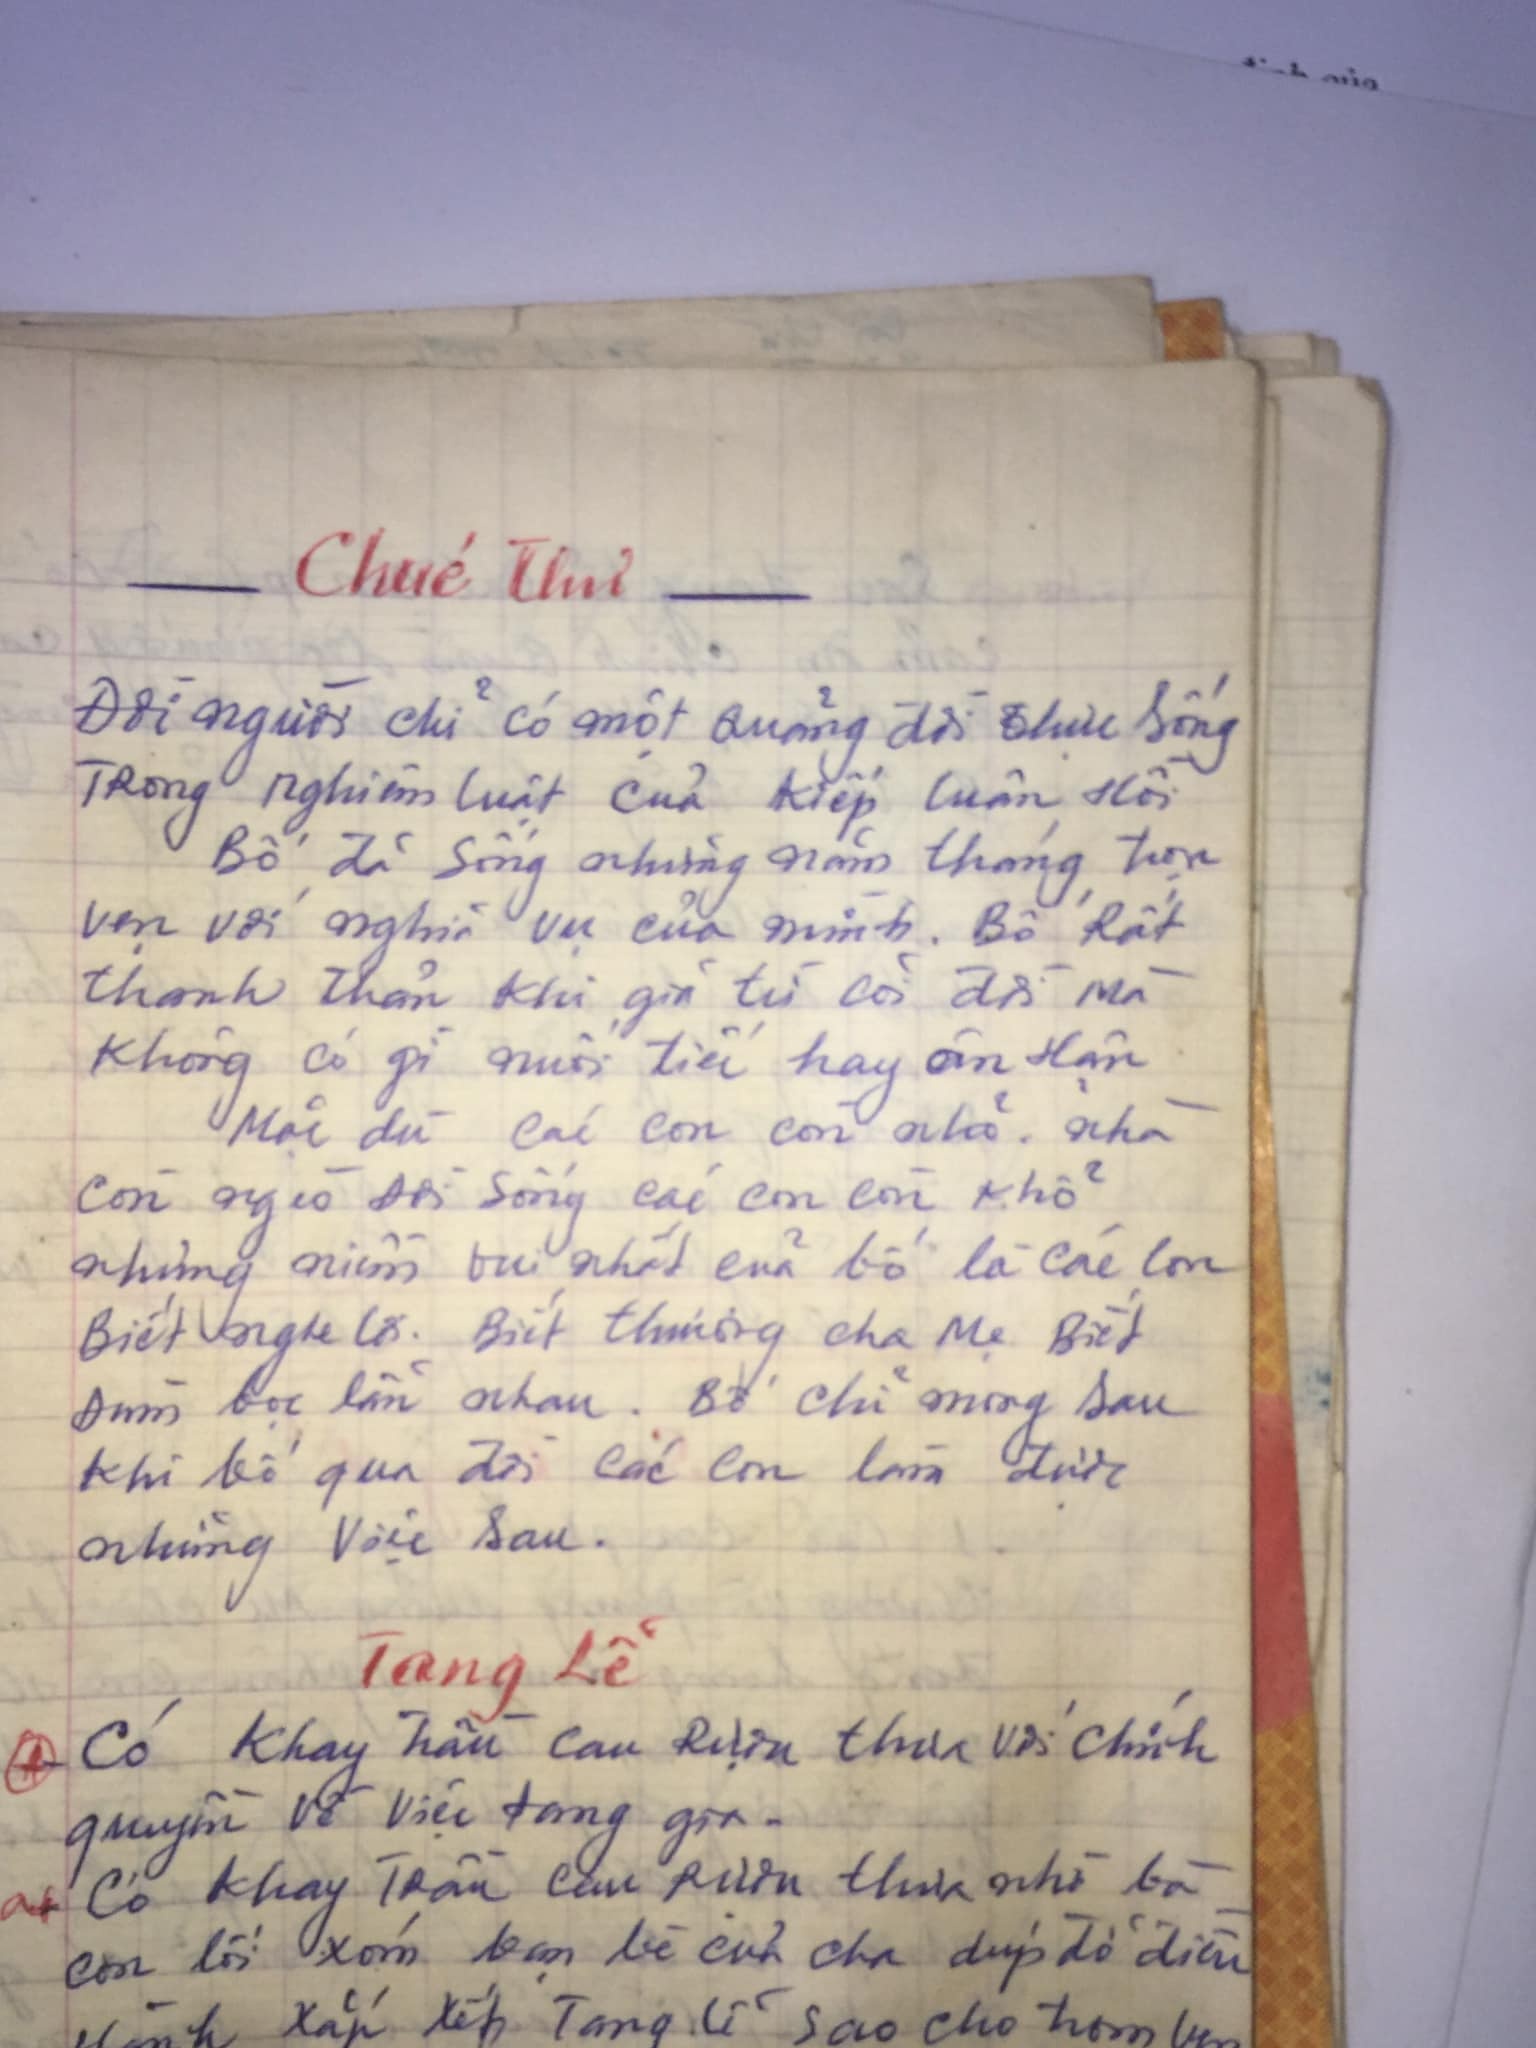 Chúc Thư
Đời người chỉ có một quảng đời thực sống
Trong nghiêm luật của kiếp luân hồi
Bố đã sống những năm tháng trọn
vẹn với nghĩa vụ của mình. Bố Rất
thanh thản khi giã từ cõi đời mà
không có gì nuối tiếc hay ân hận
Mặc dù các con còn nhỏ. nhà
còn nghèo đời sống các con còn khổ
nhưng niềm vui nhất của bố là các con
Biết nghe lời. Biết thương cha Mẹ Biết
đùm bọc lẫn nhau. Bố chỉ mong sau
khi bố qua đời các con làm được
những Việc sau.
Tang Lễ
Có khay trầu cau Rượu thưa với chính
quyền về việc tang gia.
a+ Có khay Trầu cau Rượu thưa nhờ bà
con lối xóm bạn bè của cha dúp đỡ điều
Hành xắp xếp Tang lễ sao cho trọn vẹn